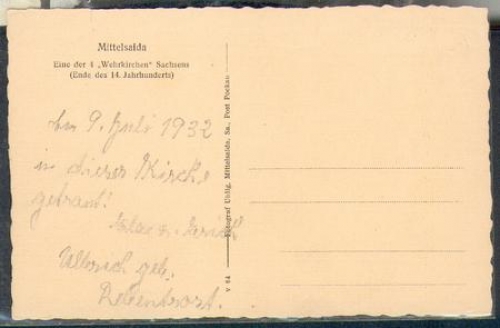 Mittelsaida
Eine der 4 „Wehrkirchen" Sachsens
(Ende des 14. Jahrhunderts)
Am 9. Juli 1932
in dieser Kirche
getraut!
Ullrich geb.
Fotograf Uhlig, Mittelsaida, Sa., Post Pockau
V 64